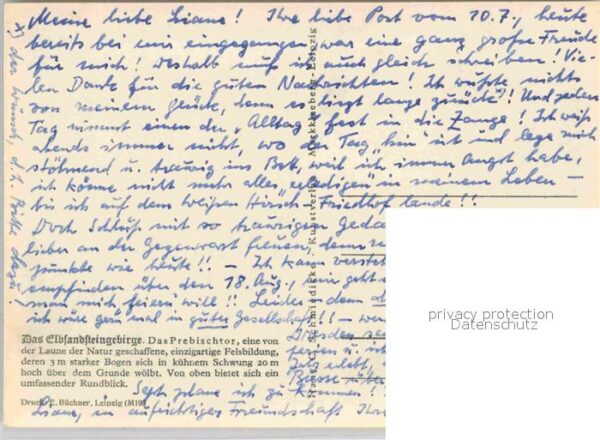 Meine liebe Liane! Ihre liebe Post vom 10.7., heute
bereits bei mir eingegangen, war eine ganz große Freude
für mich! Deshalb muß ich auch gleich schreiben! Vie-
len Dank für die guten Nachrichten! Ich wußte nichts
von meinem Glück, denn es liegt lange zurück! Und jeden
Tag nimmt einen der „Alltag" fest in die Zange! Ich weiß
abends immer nicht, wo der Tag „hin" ist und lege mich
stöhnend u. traurig ins Bett, weil ich immer Angst habe,
ich könne nicht mehr alles „erledigen" in meinem Leben –
bis ich auf dem Weißen Hirsch-Friedhof lande!!
Doch Schluß mit so traurigen
lieber an der Gegenwart freuen, denn
punkte wie heute!! – Ich kann
empfinden über den 18. Aug.,
man mich feiern will!! Leider
ich wäre gern mal in guter Gesellschaft!! –
Dresden
Das Elbsandsteingebirge. Das Prebischtor, eine von
der Laune der Natur geschaffene, einzigartige Felsbildung,
deren 3 m starker Bogen sich in kühnem Schwung 20 m
hoch über dem Grunde wölbt. Von oben bietet sich ein
umfassender Rundblick.
Sept. plane ich zu kommen!
Druck: E. Büchner, Leipzig (M19)
Liane, in aufrichtiger Freundschaft Ihre
Schmiedicke, Kunstverlag, Markkleeberg-Leipzig
privacy protection
Datenschutz